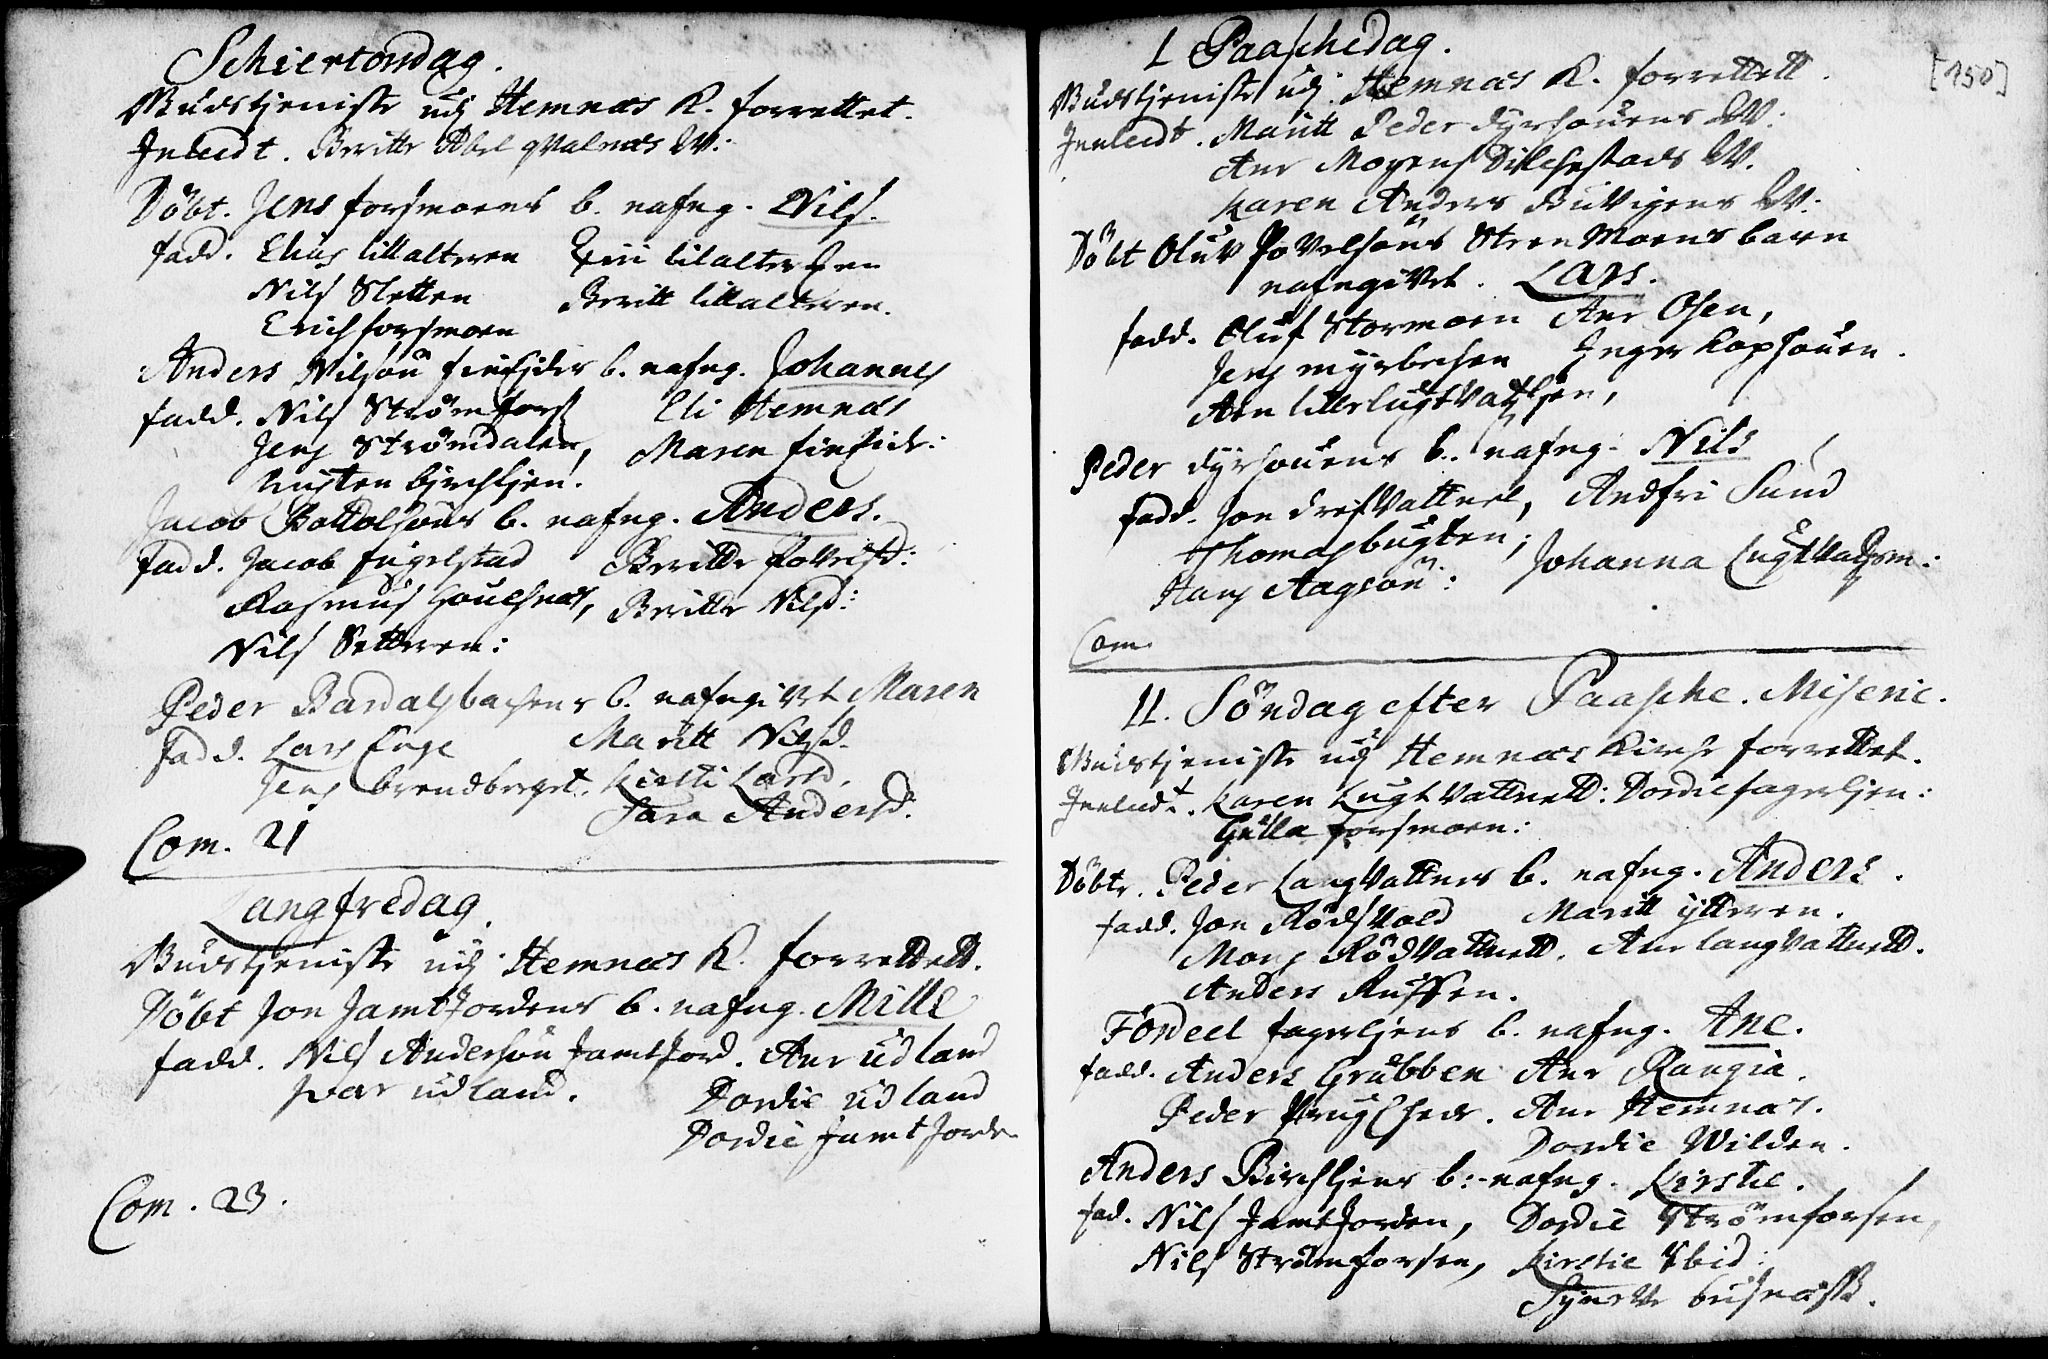 Schiertorsdag.
Gudstjeniste udj Hemnæs K. forrettet.
Inledt. Beritte Abel qvalnæs W:
Döbt. Jens forsmoens b. nafng. Nils.
fadd. Elias lillalteren
Nils Sletten Beritt lillalteren.
Erich forsmoen
Anders Nilsøn finEjder b. nafng. Johannes
fadd. Nils Strömfors Eli Hemnæs
Jens Strömdalen, Maren finEide:
Austen birchljen.
Jacob Bottolsöns b. nafng. Anders.
fadd. Jacob Engelstad Beritte Povelsd:
Rasmus houchnæs, Beritte Nilsd:
Nils Setteren:
Peder Bardalsbachens b. nafngivet Maren
fadd. Lars Enge Maritt Nilsd.
Jens brendberget. Kirsti Larsd.
Sara Andersd:
Com. 21
Langfredag.
Gudstjeniste udj Hemnæs K. forrettett.
Döbt Jon Jamtjordens b. nafng. Mille
fadd. Nils Andersön Jamtjord. Ane udland
Iver udland. Dordie udland
Dordie Jamtjorden
Com. 23.
1 Paaschedag.
[150]
Gudstjeniste udj Hemnæs K. forrettett.
Innledt. Maritt Peder dyrhouens W:
Ane Mogens Dilchestads W.
Karen Anders Bulvigens W:
Döbt Oluv Povelsöns Steen Moens barn
nafngivet. Lars.
fadd. Oluf Stormoen Ane Osen,
Jens myrbechen Inger Kaphouen.
Peder dyrhouens b. nafng. Nils
fadd. Jon drefvattnet, Andfri Sund
Thomas bugten; Johanna
Hans Aagsön:
Com.
II. Söndag efter Paasche. Miseric.
Gudstjeniste udj Hemnæs Kirche forrettet.
Innledt. Karen Lugtvattnett: Dordie fagerljen:
Gulla forsmoen:
Döbte. Peder Langvattnes b. nafng. Anders.
fadd. Jon Rödsvold Maritt ytteren.
Mons Rödvattnett. Ane langvattnett.
Anders Russen.
Fordeel fagerljens b. nafng. Ane.
fadd. Anders Grubben Ane Rangia.
Peder Ane Hemnæs.
Dordie Wilden.
Anders Birchljens b: nafng. Kirstie.
fad. Nils Jamtjorden, Dordie Strömforsen,
Nils Strömforsen, Kirstie Ibid:
Synevve busnæss.